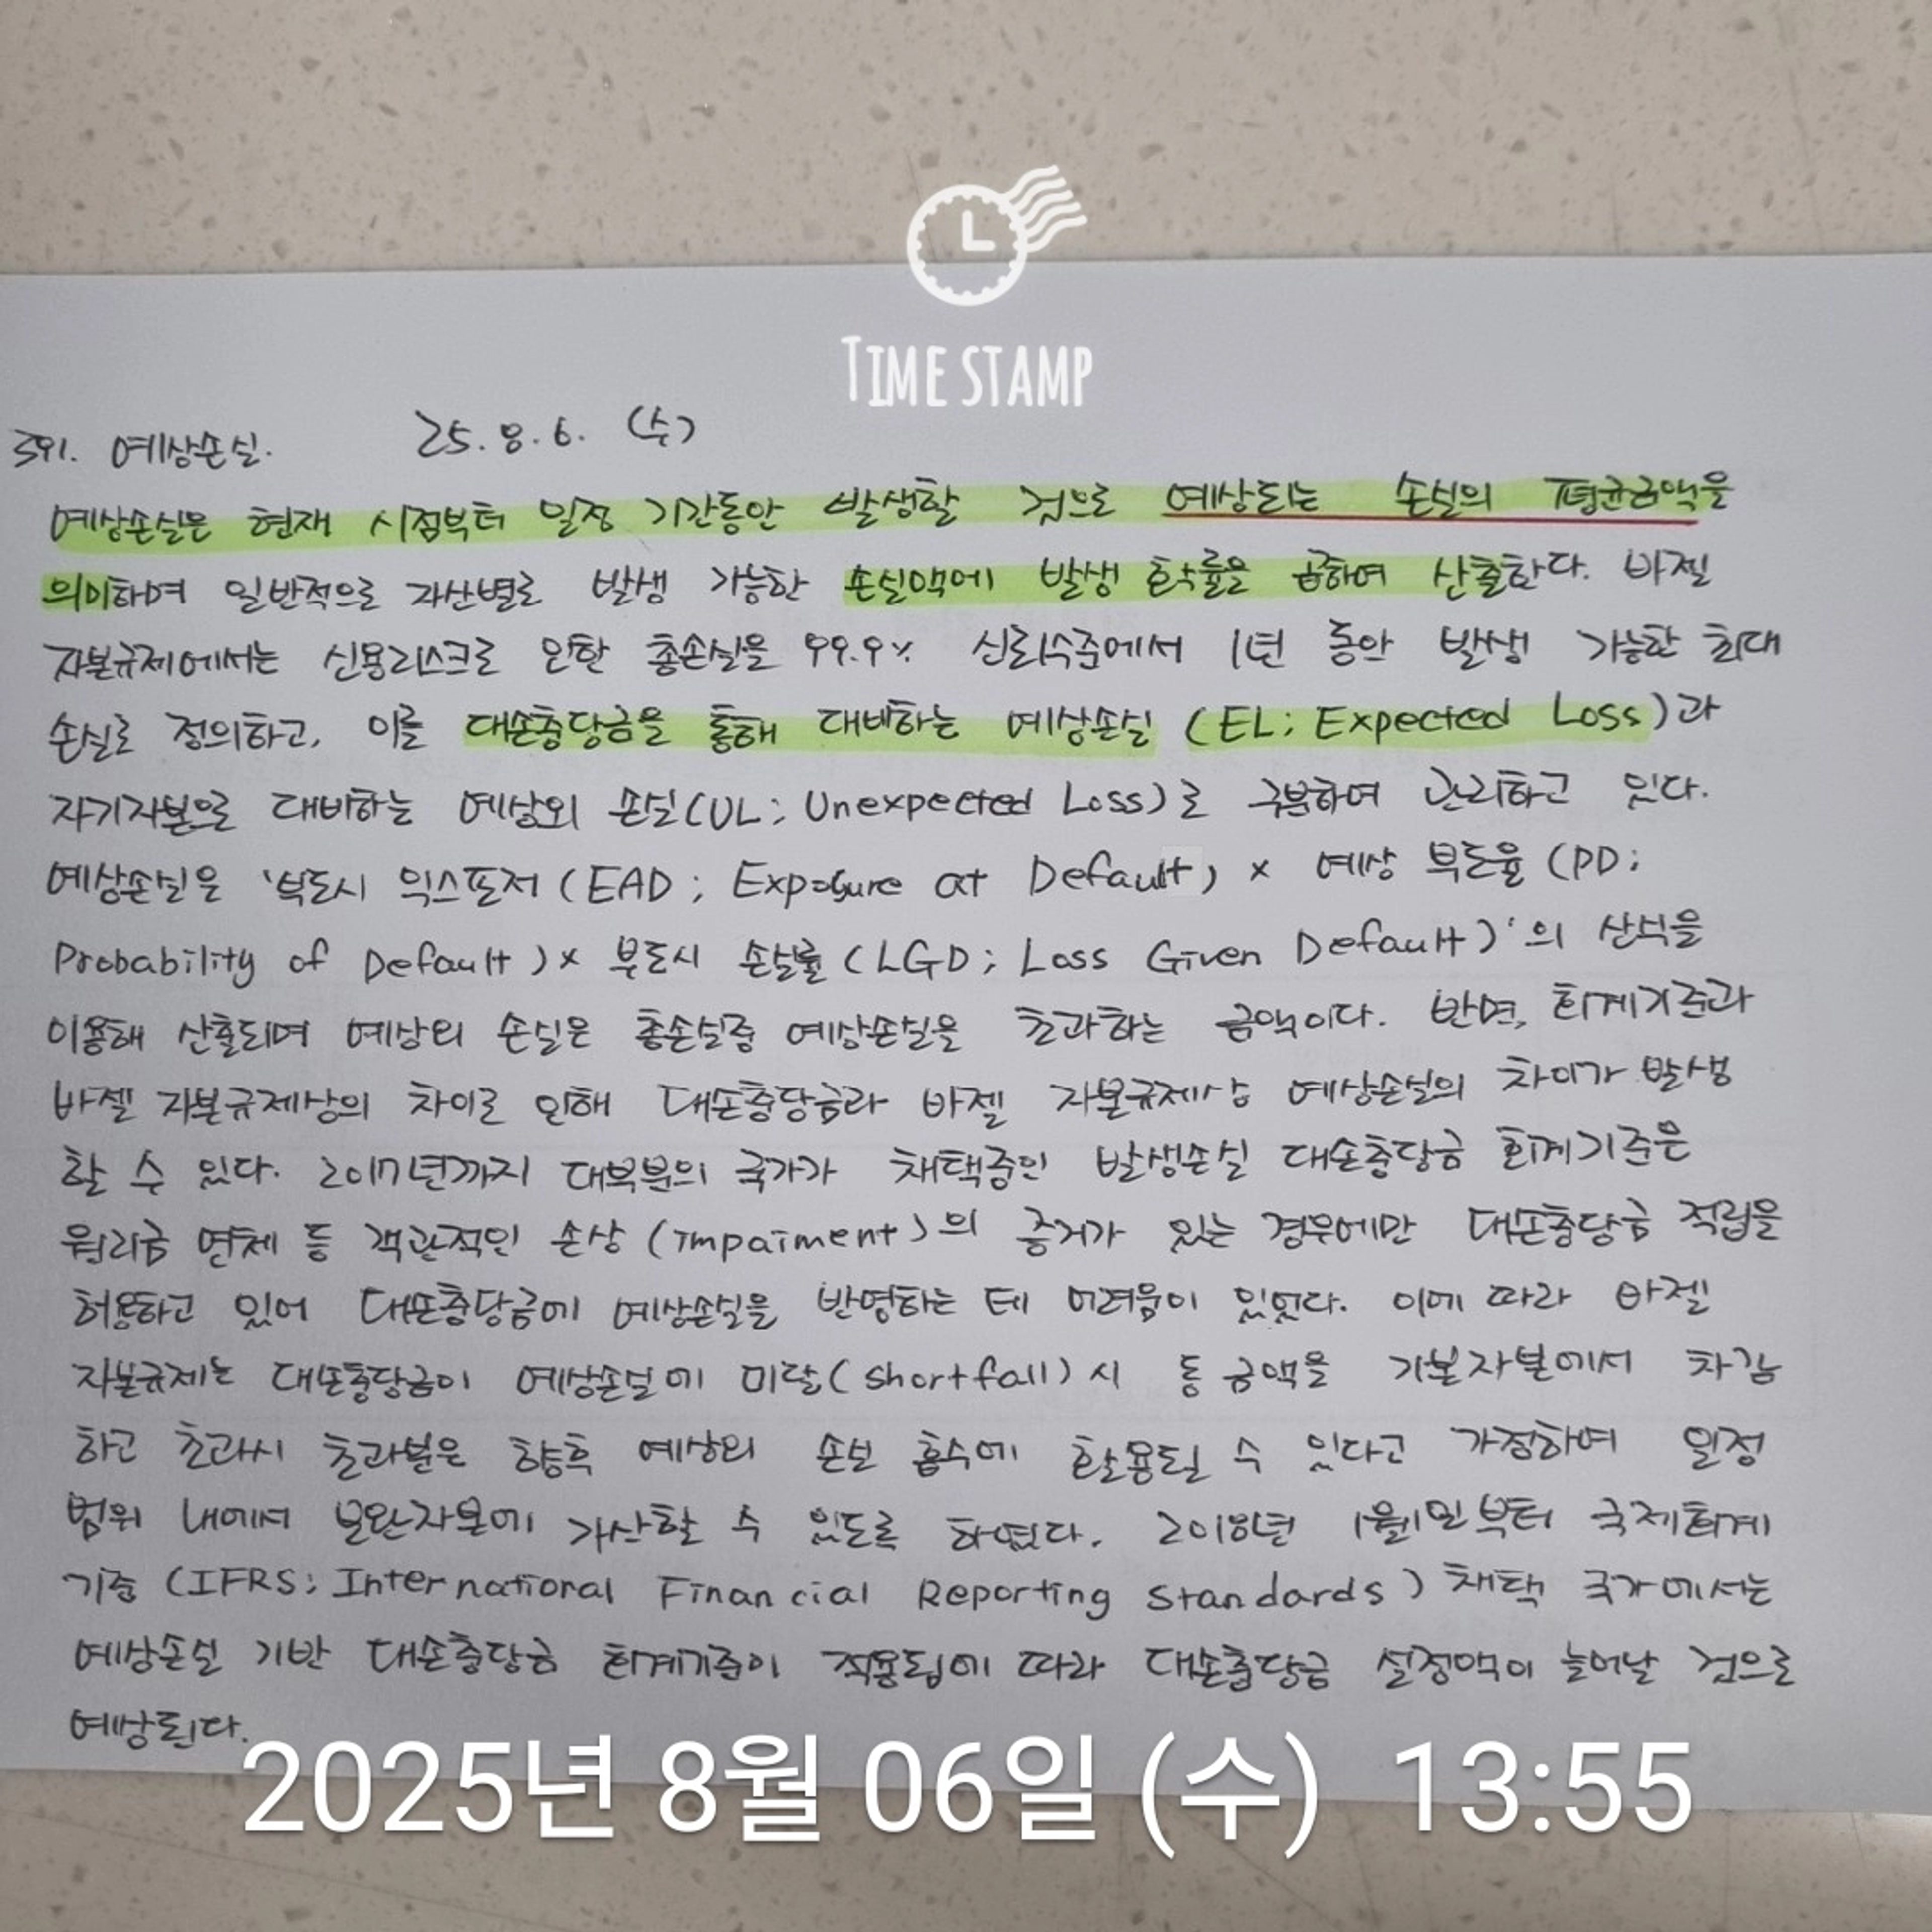 TIME STAMP
391. 예상손실. 25.8.6. (수)
예상손실은 현재 시점부터 일정 기간동안 발생할 것으로 예상되는 손실의 평균금액을
의미하며 일반적으로 자산별로 발생 가능한 손실액에 발생 확률을 곱하여 산출한다. 바젤
자본규제에서는 신용리스크로 인한 총손실을 99.9% 신뢰수준에서 1년 동안 발생 가능한 최대
손실로 정의하고, 이를 대손충당금을 통해 대비하는 예상손실 (EL; Expected Loss)과
자기자본으로 대비하는 예상외 손실(UL; Unexpected Loss)로 구분하여 관리하고 있다.
예상손실은 '부도시 익스포저(EAD; Exposure at Default) x 예상 부도율 (PD;
Probability of Default)x 부도시 손실률(LGD; Loss Given Default)'의 산식을
이용해 산출되며 예상외 손실은 총손실중 예상손실을 초과하는 금액이다. 반면, 회계기준과
바젤 자본규제상의 차이로 인해 대손충당금과 바젤 자본규제상 예상손실의 차이가 발생
할 수 있다. 2017년까지 대부분의 국가가 채택중인 발생손실 대손충당금 회계기준은
원리금 연체 등 객관적인 손상(impairment)의 증거가 있는 경우에만 대손충당금 적립을
허용하고 있어 대손충당금에 예상손실을 반영하는 데 어려움이 있었다. 이에 따라 바젤
자본규제는 대손충당금이 예상손실에 미달(shortfall)시 동 금액을 기본자본에서 차감
하고 초과시 초과분은 향후 예상외 손실 흡수에 활용될 수 있다고 가정하여 일정
범위 내에서 보완자본에 가산할 수 있도록 하였다. 2018년 1월1일부터 국제회계
기준 (IFRS; International Financial Reporting Standards) 채택 국가에서는
예상손실 기반 대손충당금 회계기준이 적용됨에 따라 대손충당금 설정액이 늘어날 것으로
예상된다.
2025년 8월 06일 (수) 13:55